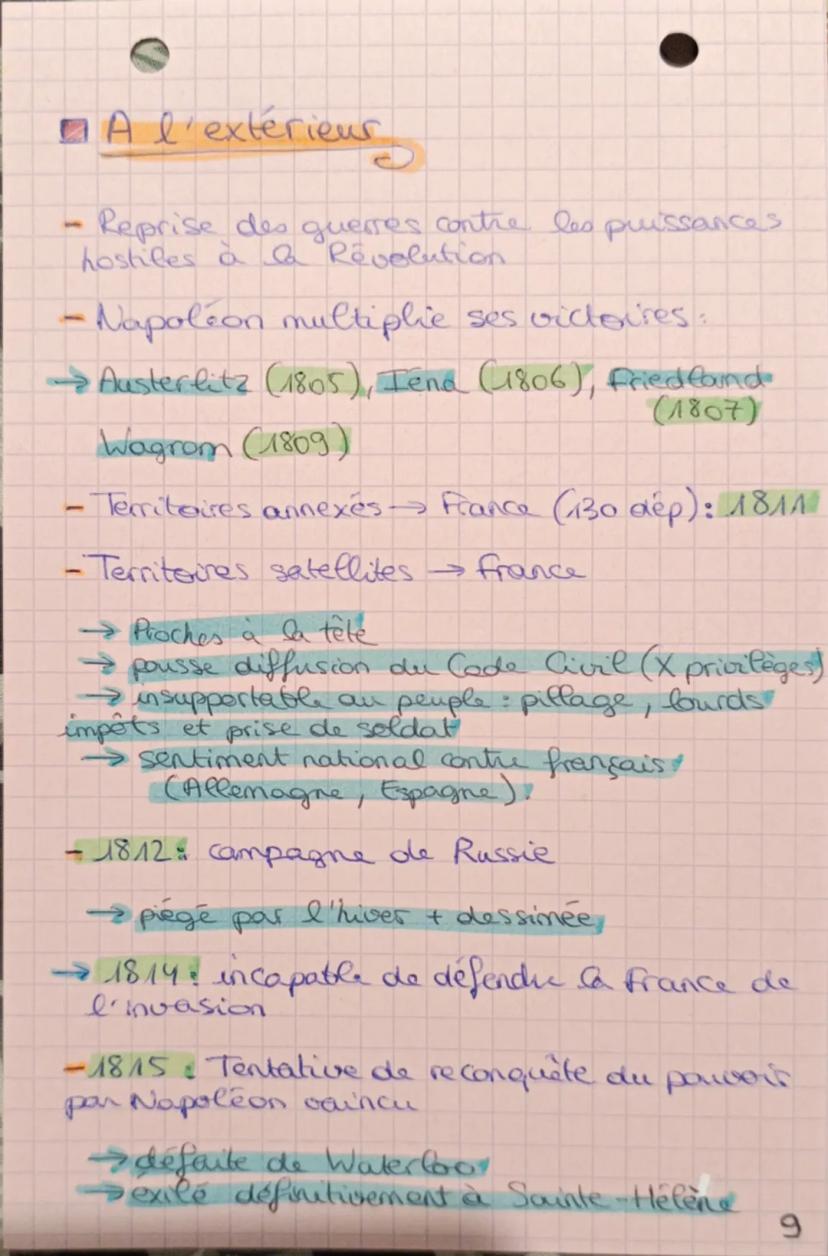 A l'extérieur
- Reprise des guerres contre les puissances
hostiles à la Révolution
- Napoléon multiplie ses victoires :
→ Austerlitz (1805), Iéna (1806), Friedland
(1807)
Wagrom (1809)
- Territoires annexés → France (130 dép) : 1811
- Territoires satellites → france
→ Proches à la tête
→ pousse diffusion du Code Civil (X privilèges)
→ insupportable au peuple : pillage, lourds
impôts et prise de soldat
→ sentiment national contre français
(Allemagne, Espagne).
- 1812 : campagne de Russie
→ piégé par l'hiver + dessimée
→ 1814 : incapable de défendre la france de
l'invasion
- 1815 : Tentative de reconquête du pouvoir
par Napoléon vaincu
→ défaite de Waterloo
→ exilé définitivement à Sainte-Hélène
9